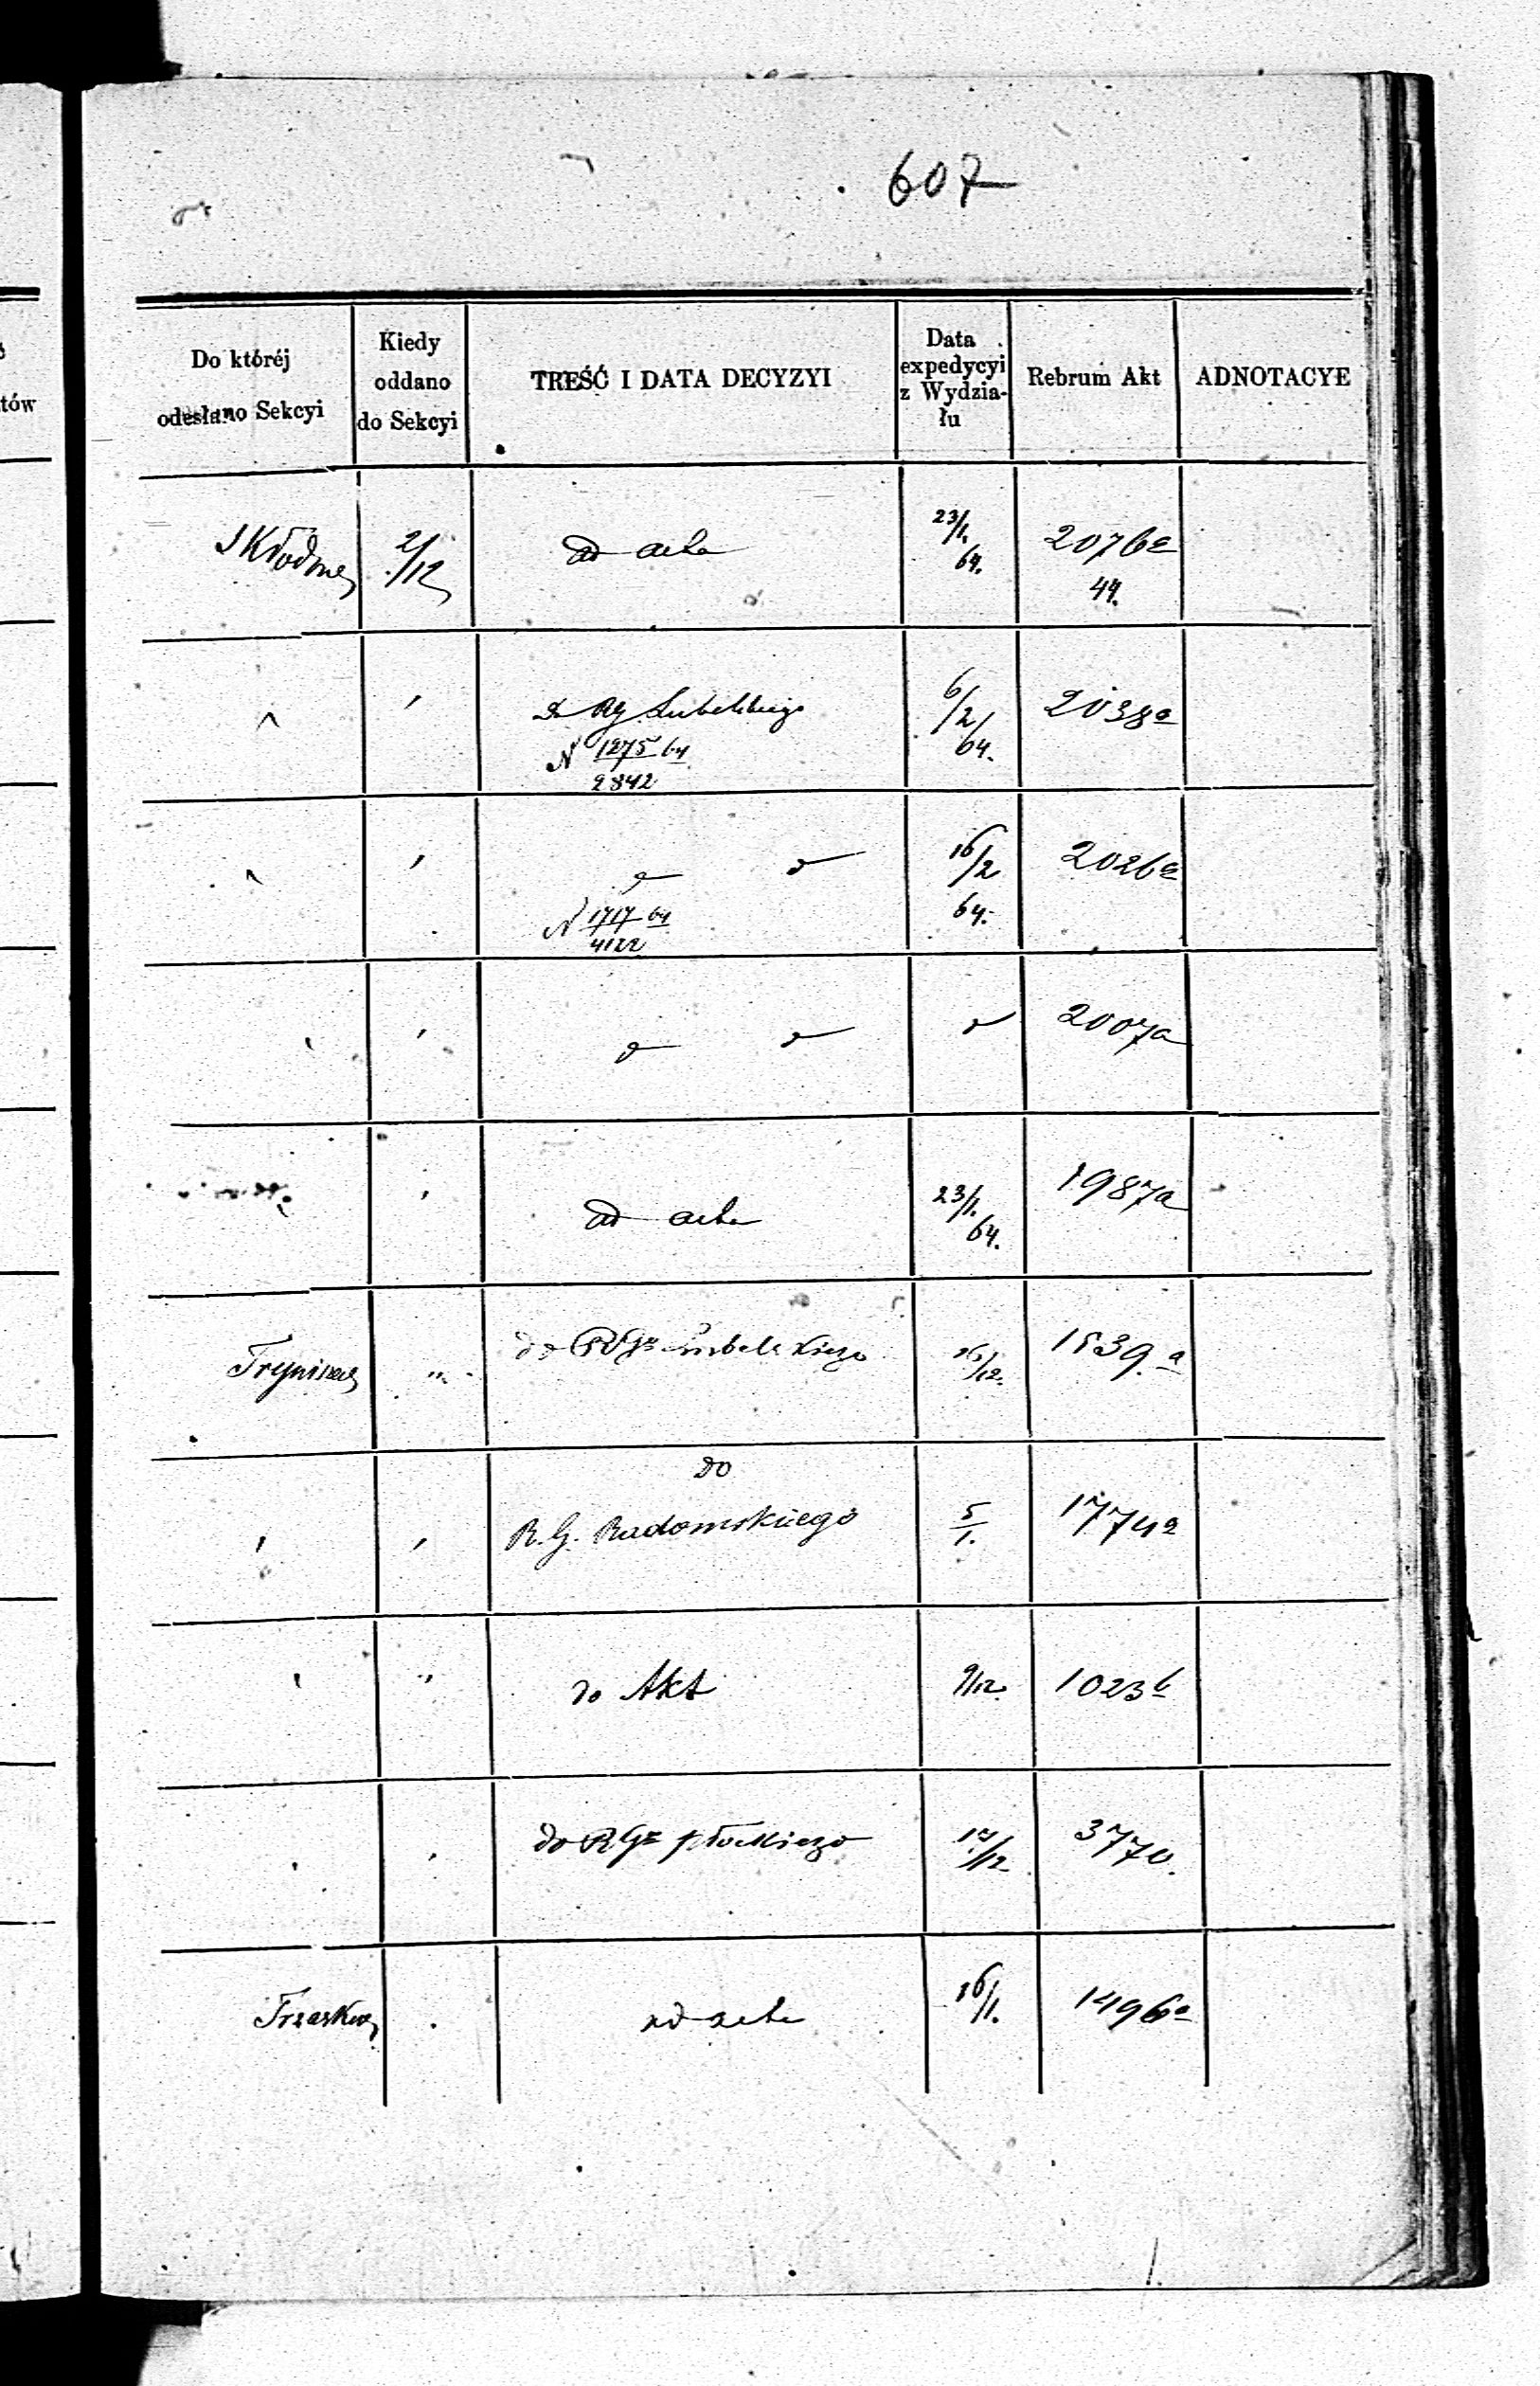 607
Do któréj
odesłano Sekcyi
Kiedy
oddano
do Sekcyi
TREŚĆ I DATA DECYZYI
Data
expedycyi
z Wydzia-
łu
Rebrum Akt
ADNOTACYE
tów
2/12
ad acta
23/1.
64.
2076a
49.
Do RG Lubelskiego
N 1275 64
2842
6/2
64.
2038a
N 1717 64
4122
16/2
64.
2026a
2007a
ad acta
23/1.
64.
1987a
"
do RGo Lubelskiego
16/12.
1539.a
do
R. G. Radomskiego
5
1.
1774a
"
do Akt
9/12.
1023b
do RGo płockiego
17/12
3770.
ad acta
16/1.
1496a